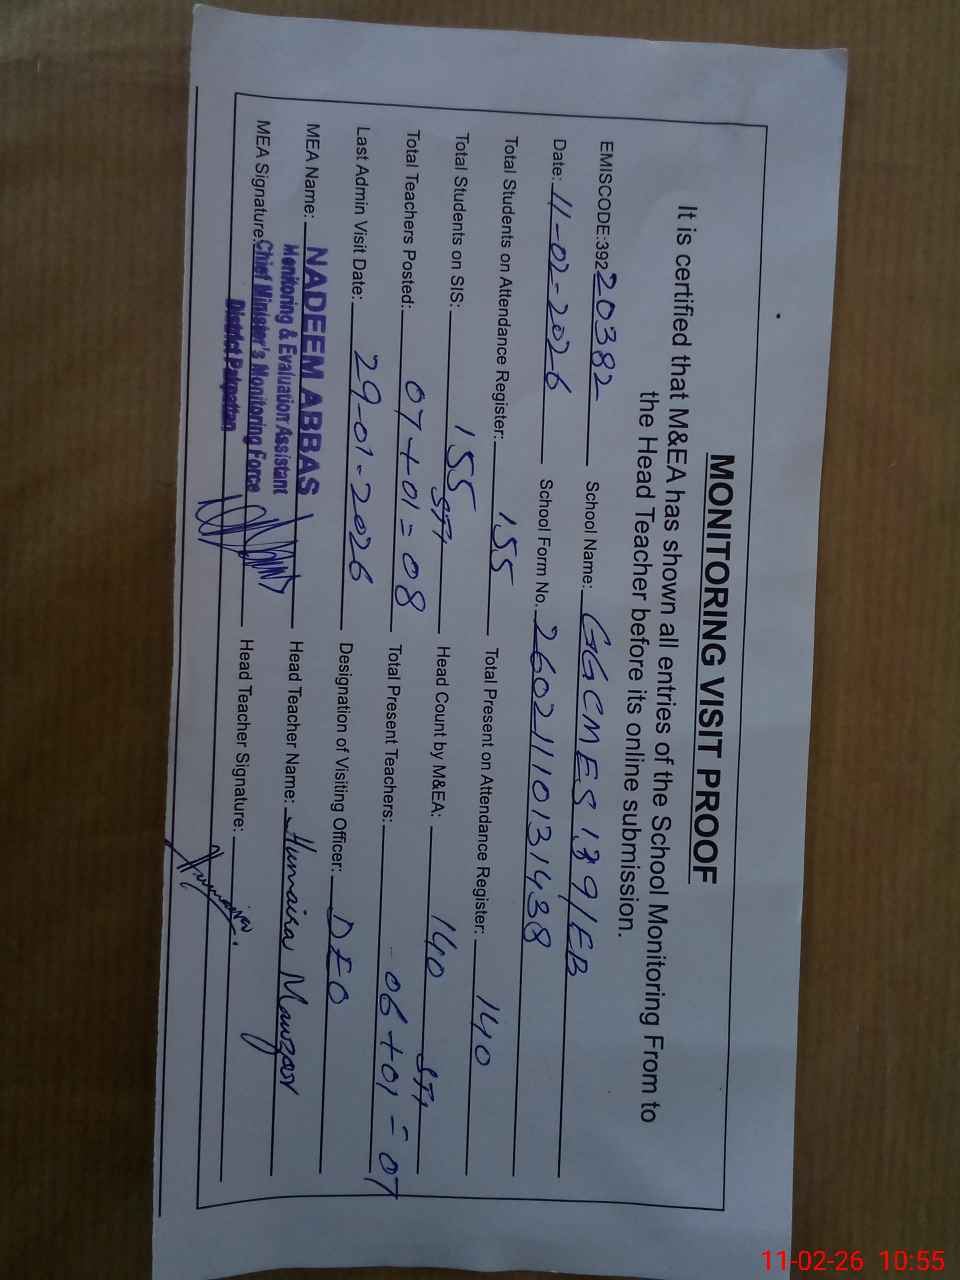 MONITORING VISIT PROOF
It is certified that M&EA has shown all entries of the School Monitoring From to
the Head Teacher before its online submission.
EMISCODE:39220382 School Name: GGCMES 139/EB
Date: 11-02-2026 School Form No. 26021110131438
Total Students on Attendance Register: 155 Total Present on Attendance Register: 140
Total Students on SIS: 155 Head Count by M&EA: 140
STI STI
Total Teachers Posted: 07+01=08 Total Present Teachers: 06+01=07
Last Admin Visit Date: 29-01-2026 Designation of Visiting Officer: DEO
MEA Name: NADEEM ABBAS Head Teacher Name: Humaira Manzoor
Monitoring & Evaluation Assistant
MEA Signature: Chief Minister's Monitoring Force Head Teacher Signature: Humaira
District Pakpattan
11-02-26 10:55